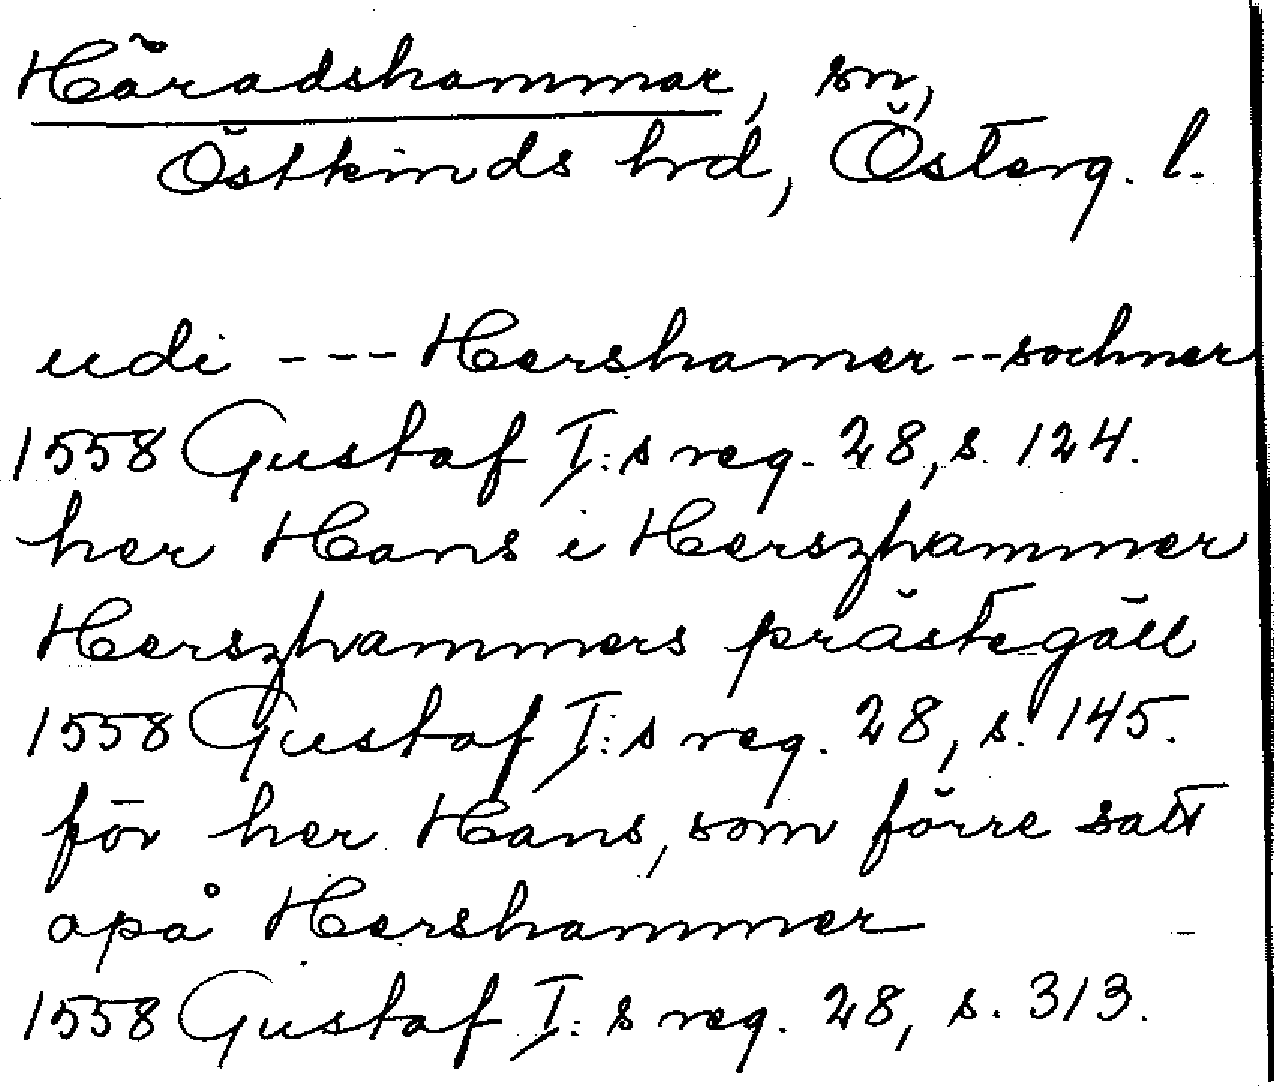 Häradshammar, sn,
Östkinds hrd, Österg. l.
udi --- Hershamer -- sochner
1558 Gustaf I:s reg. 28, s. 124.
her Hans i Herszhammer
Herszhammers prästegäll
1558 Gustaf I:s reg. 28, s. 145.
för her Hans, som förre satt
opå Hershammer
1558 Gustaf I:s reg. 28, s. 313.